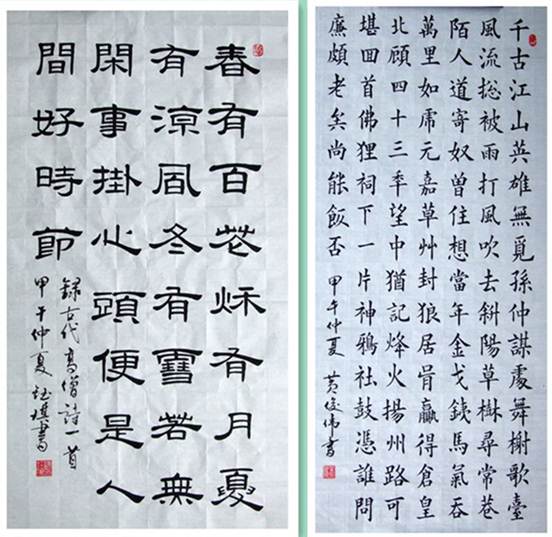 春有百花秋有月夏
有涼風冬有雪若無
閑事掛心頭便是人
間好時節
錄古代高僧詩一首
甲午仲夏 書
千古江山英雄無覓孫仲謀處舞榭歌臺
風流總被雨打風吹去斜陽草樹尋常巷
陌人道寄奴曾住想當年金戈鐵馬氣吞
萬里如虎元嘉草艸封狼居胥贏得倉皇
北顧四十三年望中猶記烽火揚州路可
堪回首佛狸祠下一片神鴉社鼓憑誰問
廉頗老矣尚能飯否 甲午仲夏 黃俊偉書